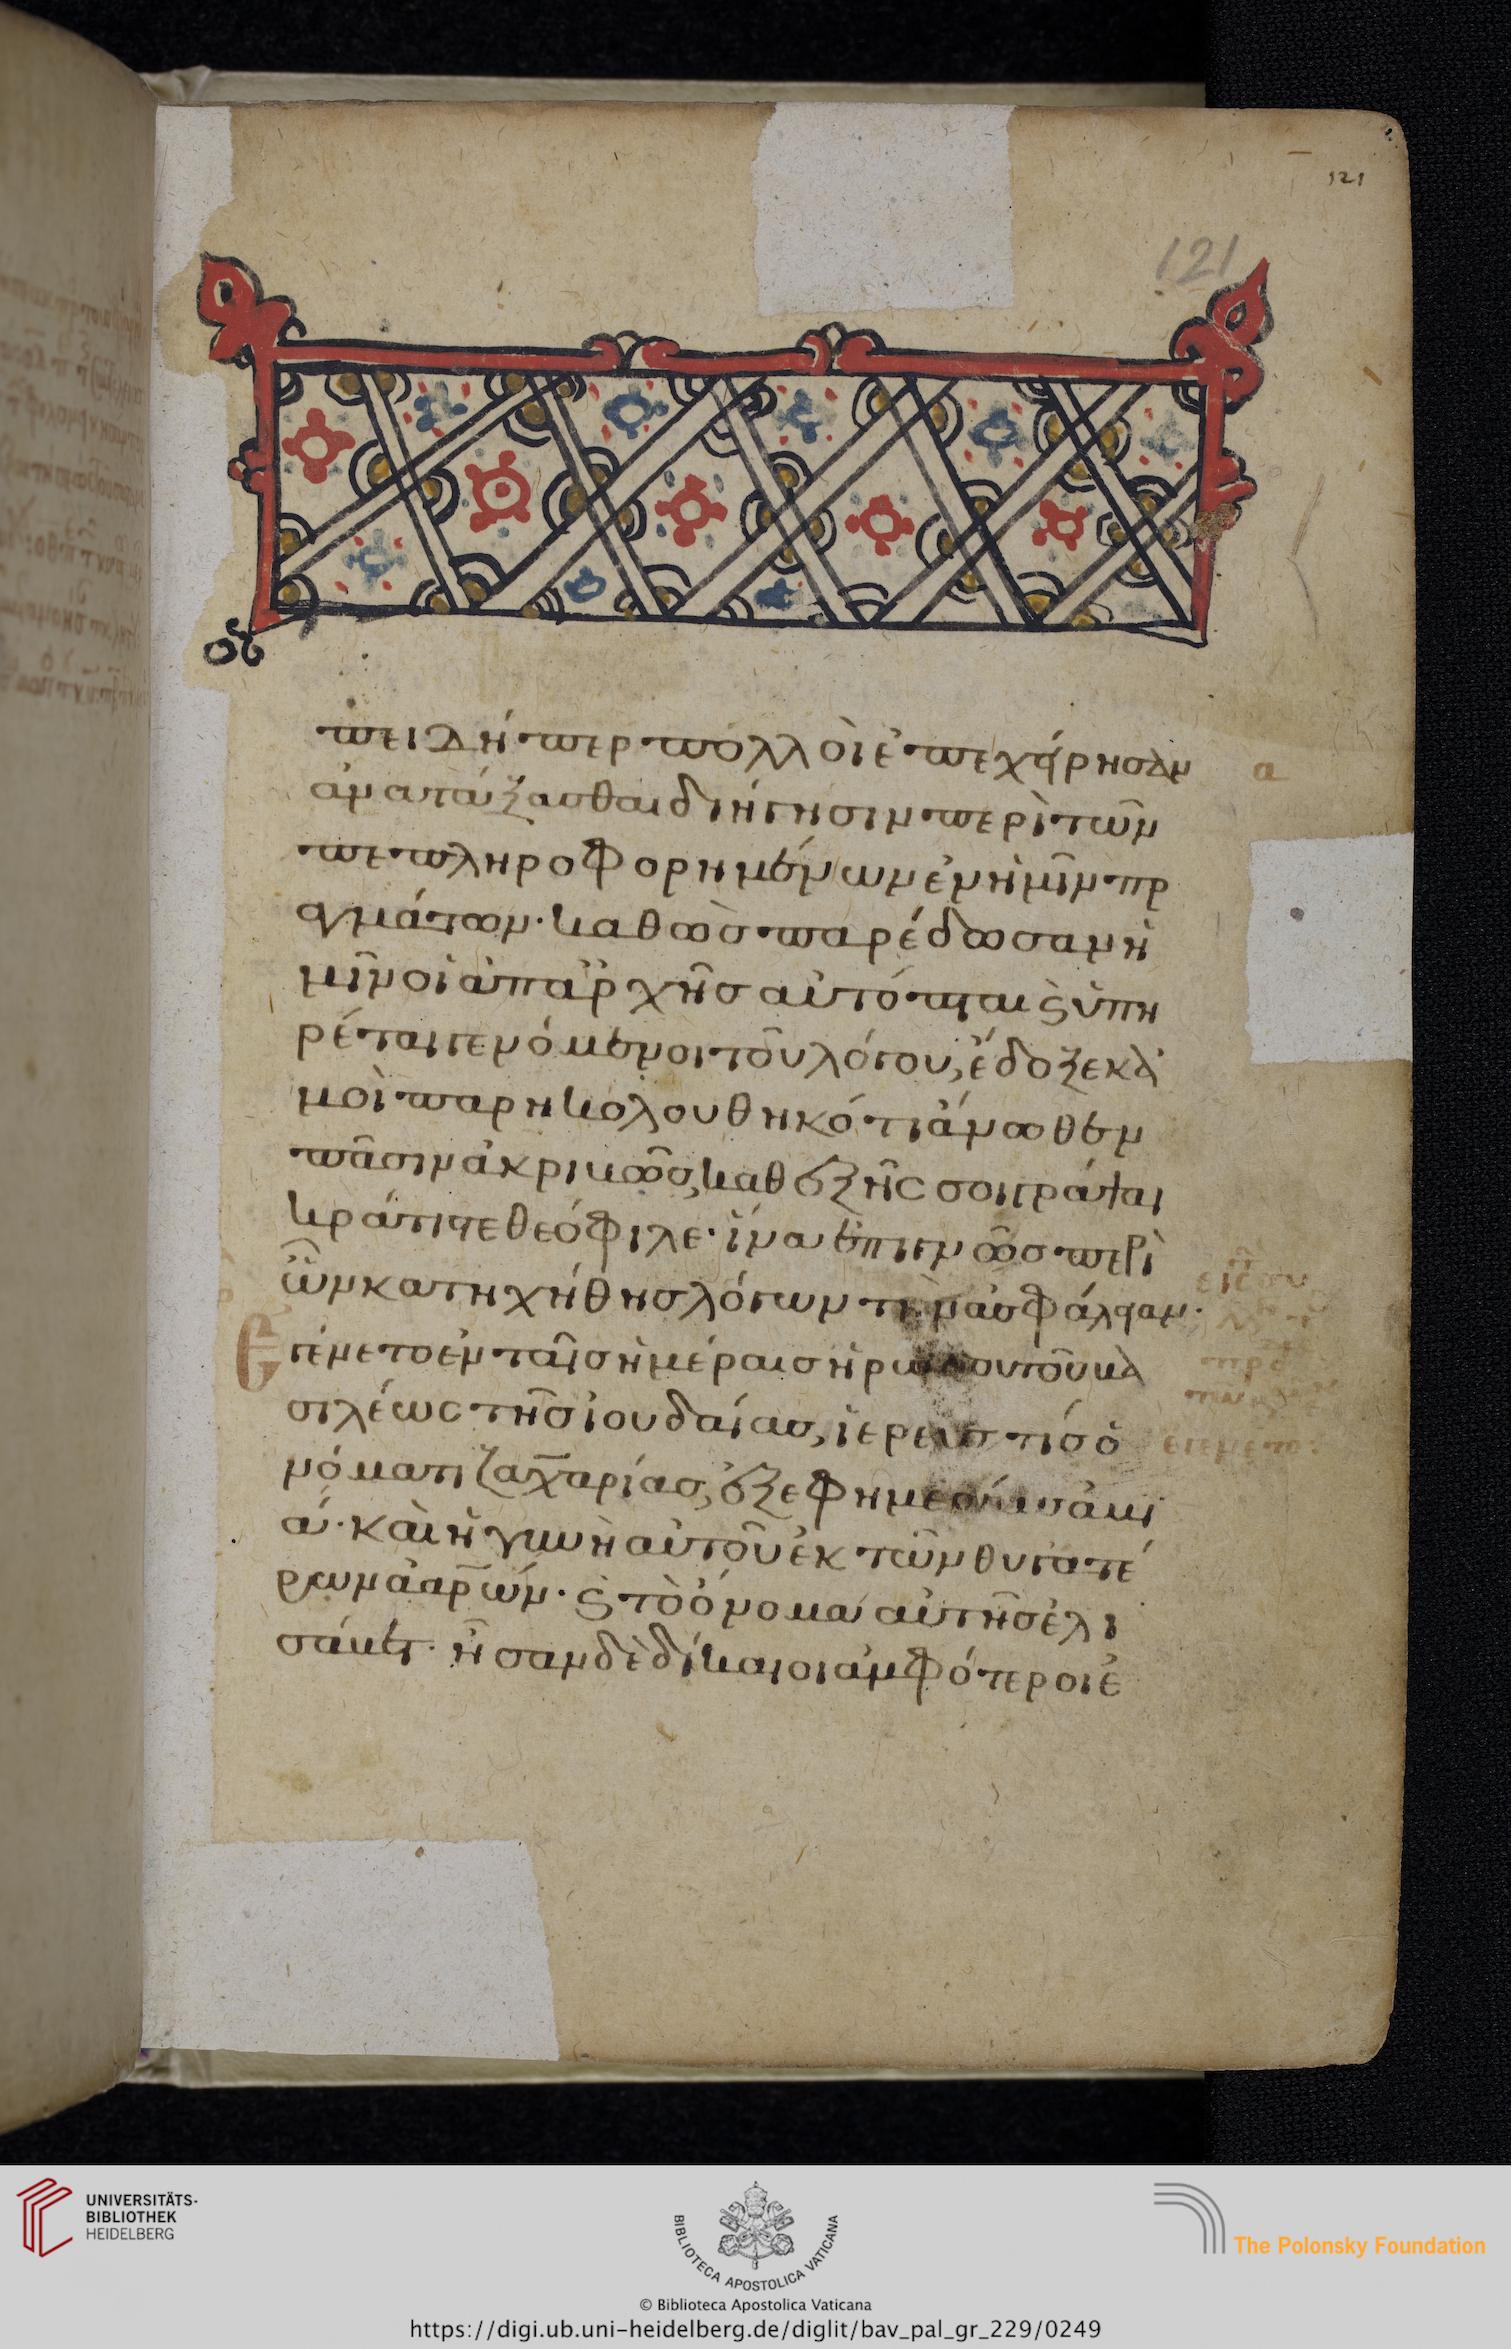 121
121
πειδήπερ πολλοὶ ἐπεχείρησαν
α
ἀνατάξασθαι διήγησιν περὶ τῶν
πεπληροφορημένων ἐν ἡμῖν πρ
αγμάτων· καθὼς παρέδωσαν ἡ
μῖν οἱ ἀπαρχῆς αὐτόπται ϗ ὑπη
ρέται γενόμενοι τοῦ λόγου, ἔδοξε κἀ
μοὶ παρηκολουθηκότι ἄνωθεν
πᾶσιν ἀκριβῶς, καθεξῆς σοι γράψαι
κράτιστε θεόφιλε· ἵνα ἐπιγνῶς περὶ
ὧν κατηχήθης λόγων τὴν ἀσφάλειαν·
Εγένετο ἐν ταῖς ἡμέραις ἡρώδου τοῦ βα
σιλέως τῆς ἰουδαίας, ἱερεύς τίς ὀ
νόματι ζαχαρίας, ἐξ εφημερίας ἀβι
ά· καὶ ἡ γυνὴ αὐτοῦ ἐκ τῶν θυγατέ
ρων ἀαρών· ϗ τὸ ὄνομα αὐτῆς ἐλι
σάβετ· ἦσαν δὲ δίκαιοι ἀμφότεροι ἐ
UNIVERSITÄTS-
BIBLIOTHEK
HEIDELBERG
BIBLIOTECA APOSTOLICA VATICANA
The Polonsky Foundation
© Biblioteca Apostolica Vaticana
https://digi.ub.uni-heidelberg.de/diglit/bav_pal_gr_229/0249